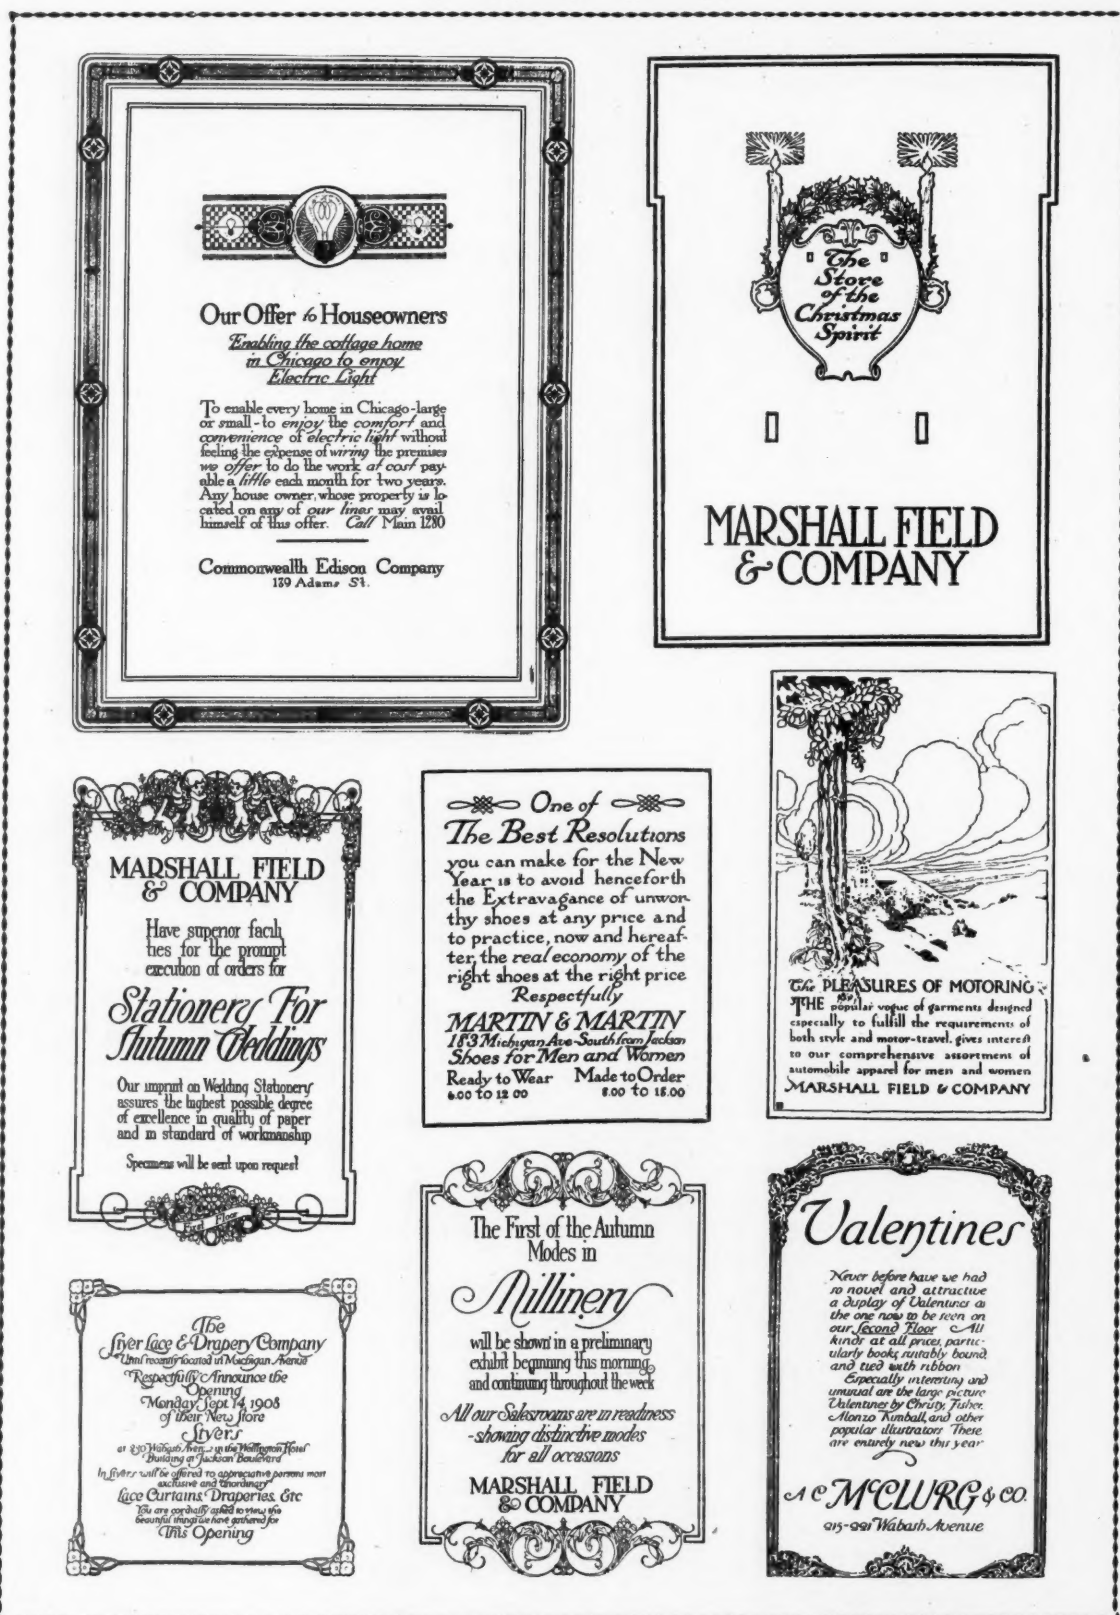 Our Offer to Houseowners
Enabling the cottage home
in Chicago to enjoy
Electric Light
To enable every home in Chicago-large
or small-to enjoy the comfort and
convenience of electric light without
feeling the expense of wiring the premises
we offer to do the work at cost pay-
able a little each month for two years.
Any house owner, whose property is lo-
cated on any of our lines may avail
himself of this offer. Call Main 1280
Commonwealth Edison Company
139 Adams St.
The
Store
of the
Christmas
Spirit
MARSHALL FIELD
& COMPANY
MARSHALL FIELD
& COMPANY
Have superior facili
ties for the prompt
execution of orders for
Stationery For
Autumn Weddings
Our imprint on Wedding Stationery
assures the highest possible degree
of excellence in quality of paper
and in standard of workmanship
Specimens will be sent upon request
First Floor
One of
The Best Resolutions
you can make for the New
Year is to avoid henceforth
the Extravagance of unwor-
thy shoes at any price and
to practice, now and hereaf-
ter, the real economy of the
right shoes at the right price
Respectfully
MARTIN & MARTIN
183 Michigan Ave-South from Jackson
Shoes for Men and Women
Ready to Wear Made to Order
6.00 to 12 00 8.00 to 18.00
The PLEASURES OF MOTORING
THE popular vogue of garments designed
especially to fulfill the requirements of
both style and motor-travel, gives interest
to our comprehensive assortment of
automobile apparel for men and women
MARSHALL FIELD & COMPANY
The
Styer Lace & Drapery Company
Until recently located in Michigan Avenue
Respectfully Announce the
Opening
Monday, Sept 14, 1908
of their New Store
Styers
at 230 Wabash in the Wellington Hotel
Building at Jackson Boulevard
In Styers will be offered to appreciative persons most
exclusive and
Lace Curtains, Draperies, Etc
You are cordially asked to view the
beautiful things we have gathered for
This Opening
The First of the Autumn
Modes in
Millinery
will be shown in a preliminary
exhibit beginning this morning,
and continuing throughout the week
All our Salesrooms are in readiness
-showing distinctive modes
for all occasions
MARSHALL FIELD
& COMPANY
Valentines
Never before have we had
so novel and attractive
a display of Valentines as
the one now to be seen on
our Second Floor All
kinds at all prices, partic-
ularly books suitably bound,
and tied with ribbon
Especially interesting and
unusual are the large picture
Valentines by Christy, Fisher,
Alonzo Kimball, and other
popular illustrators These
are entirely new this year
A C McCLURG & CO.
215-221 Wabash Avenue